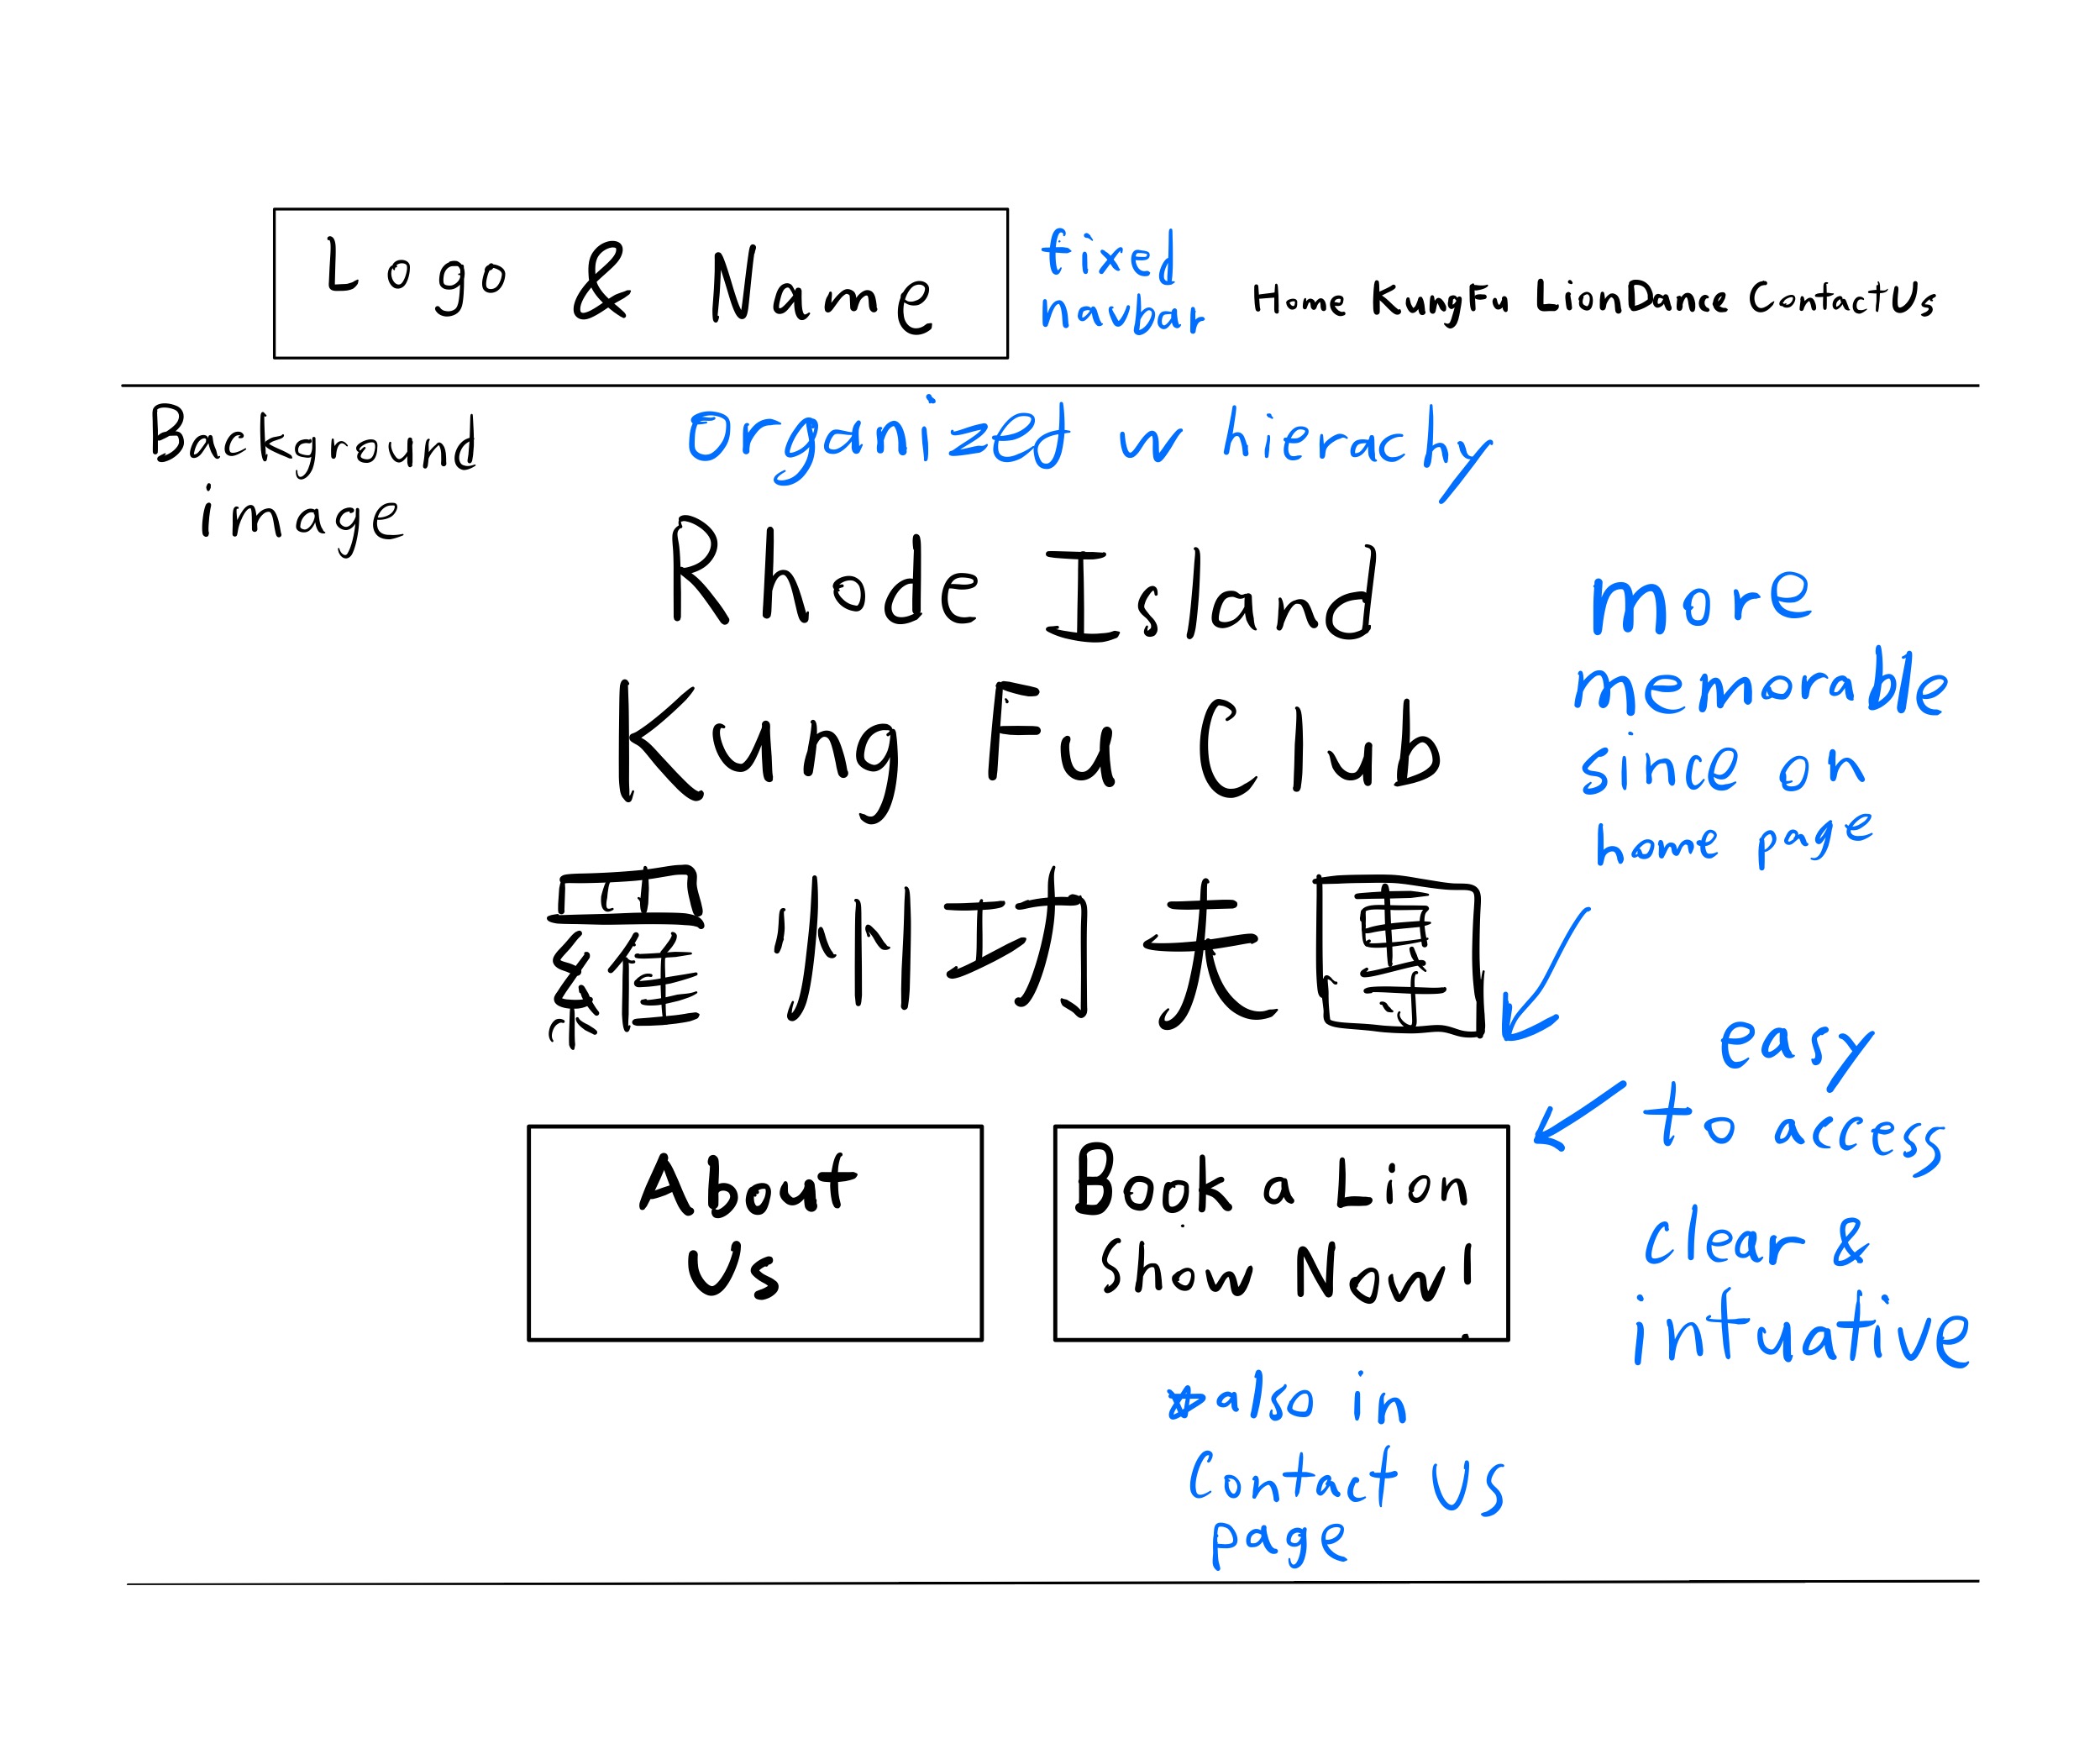 Logo & Name
fixed
navbar
Home KungFu LionDance ContactUs
Background
image
organized w hierachy
Rhode Island
Kung Fu Club
羅州功夫團
more
memorable
since on
home page
easy
to access
clear &
intuative
About
Us
Book a Lion
Show Now!
*also in
Contact Us
page